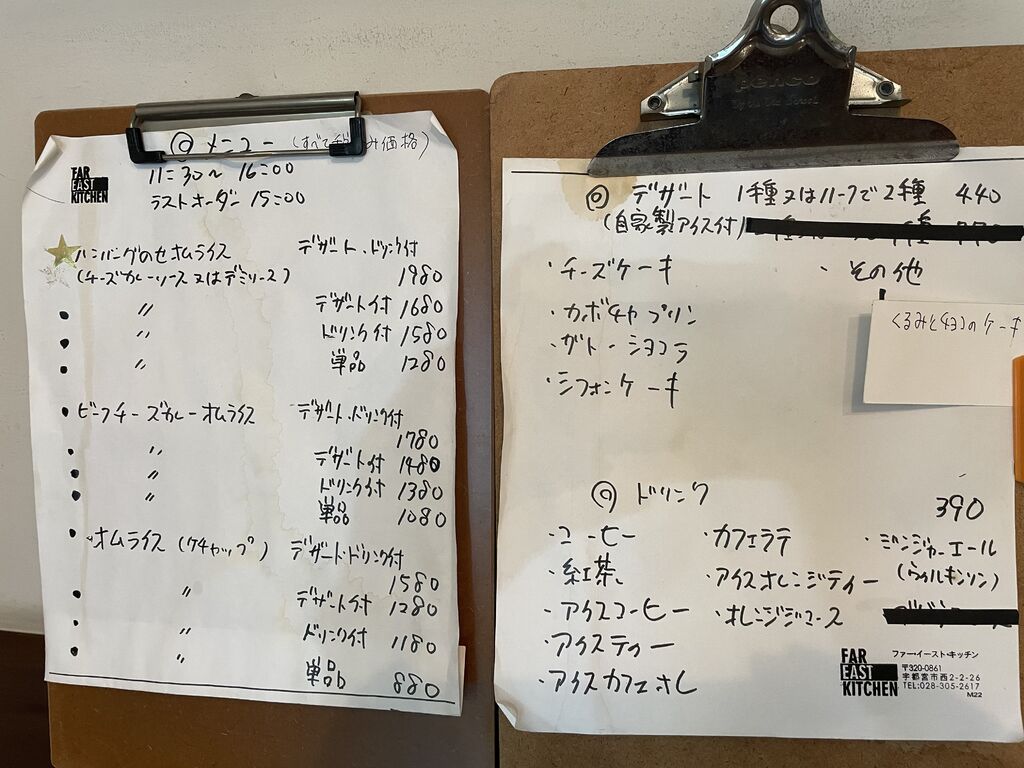 ◎ メニュー (すべて税込み価格)
FAR
EAST
KITCHEN
11:30〜16:00
ラストオーダー 15:00
ハンバーグのせオムライス デザート・ドリンク付
(チーズカレーソース又はデミソース) 1980
• 〃 デザート付 1680
• 〃 ドリンク付 1580
• 〃 単品 1280
• ビーフチーズカレーオムライス デザート・ドリンク付
1780
• 〃 デザート付 1480
• 〃 ドリンク付 1380
• 〃 単品 1080
• オムライス (ケチャップ) デザート・ドリンク付
1580
• 〃 デザート付 1280
• 〃 ドリンク付 1180
• 〃 単品 880
penco
◎ デザート 1種又はハーフで2種 440
(自家製アイス付)
・チーズケーキ
・カボチャプリン
・ガトーショコラ
・シフォンケーキ
・その他
くるみとチョコのケーキ
◎ ドリンク 390
・コーヒー
・紅茶
・アイスコーヒー
・アイスティー
・アイスカフェオレ
・カフェラテ
・アイスオレンジティー
・オレンジジュース
・ジンジャーエール
(ウィルキンソン)
FAR
EAST
KITCHEN
ファー・イースト・キッチン
〒320-0861
宇都宮市西2-2-26
TEL:028-305-2617
M22